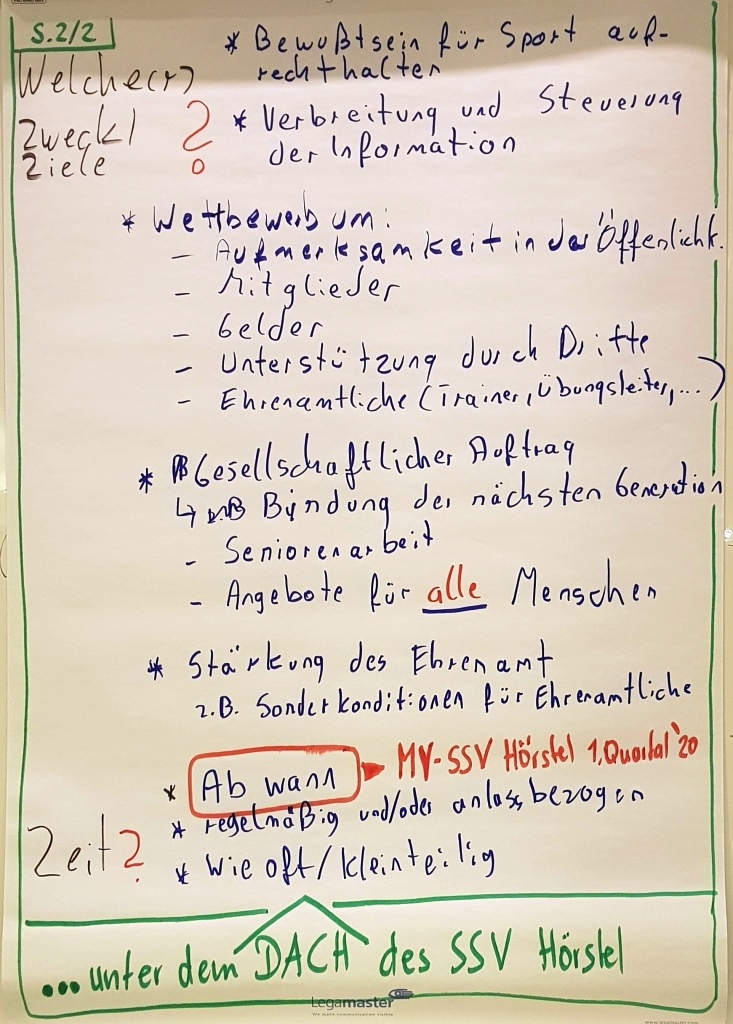 S.2/2
* Bewußtsein für Sport auf-
rechthalten
Welche(r)
Zweck/
Ziele
?
* Verbreitung und Steuerung
der Information
* Wettbewerb um:
- Aufmerksamkeit in der Öffenlichk.
- Mitglieder
- Gelder
- Unterstützung durch Dritte
- Ehrenamtliche (Trainer, Übungsleiter, ...)
* Gesellschaftlicher Auftrag
↳ Bindung der nächsten Generation
- Seniorenarbeit
- Angebote für alle Menschen
* Stärkung des Ehrenamt
z.B. Sonderkonditionen für Ehrenamtliche
* Ab wann ► MV-SSV Hörstel 1.Quartal '20
* regelmäßig und/oder anlassbezogen
Zeit?
* Wie oft/kleinteilig
...unter dem DACH des SSV Hörstel
Legamaster
We make communication visible
www.legamaster.com